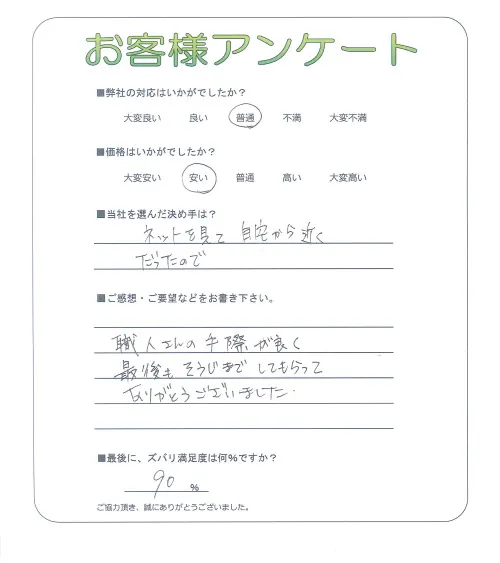 お客様アンケート
■弊社の対応はいかがでしたか？
大変良い 良い 普通 不満 大変不満
■価格はいかがでしたか？
大変安い 安い 普通 高い 大変高い
■当社を選んだ決め手は？
ネットを見て 自宅から近く
だったので
■ご感想・ご要望などをお書き下さい。
職人さんの手際が良く
最後も そうじまで してもらって
ありがとうございました.
■最後に、ズバリ満足度は何%ですか？
90 %
ご協力頂き、誠にありがとうございました。